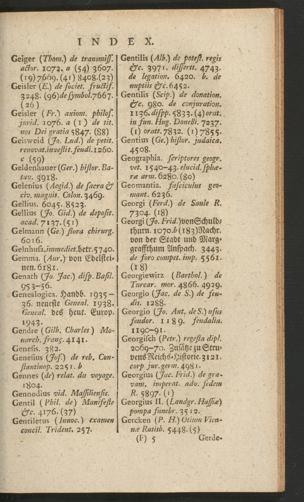 INDEX.
Geiger (Thom.) de transmiss.
actor. 1072. a (54) 3607.
(19) 7609. (41) 8408. (23)
Geisler (E.) de societ. fructif.
3248. (96) de symbol. 7667.
(26)
Geisler (Fr.) axiom. philos.
jurid. 1076. a (1) de tit.
nos Dei gratia 5847. (88)
Geisweid (Jo. Lud.) de petit.
renovat. investit. feudi. 1260.
c (59)
Geldenhauer (Ger.) histor. Ba-
tav. 5918.
Gelenius (Aegid.) de sacra &
civ. magnit. Colon. 3469.
Gellius. 6045. 8523.
Gellius (Jo. Gid.) de deposit.
acad. 7137. (51)
Gelmann (Ge.) flora chirurg.
6016.
Gelnhus. immediet. betr. 5740.
Gemma (Aur.) von Edelstei-
nen. 6181.
Genath (Jo. Jac.) disp. Basil.
953–56.
Genealogica. Handb. 1935–
36. neueste Geneal. 1938.
Geneal. des heut. Europ.
1943.
Gendre (Gilb. Charles) Mo-
narch. franç. 4141.
Genesis. 382.
Genesius (Jos.) de reb. Con-
stantinop. 2251. b
Gennes (de) relat. du voyage.
1804.
Gennadius vid. Massiliensis.
Gentil (Phil. de) Manifeste
&c. 4176. (37)
Gentiletus (Innoc.) examen
concil. Trident. 257.
Gentilis (Alb.) de potest. regis
&c. 3971. dissertt. 4743.
de legation. 6420. b. de
nuptiis &c. 6452.
Gentilis (Scip.) de donation.
&c. 980. de conjuration.
1136. dispp. 5833. (4) orat.
in fun. Hug. Donelli. 7237.
(1) oratt. 7832. (1) 7855.
Gentius (Ge.) histor. judaica.
4508.
Geographia. scriptores geogr.
vet. 1540–43. elucid. sphæ-
ræ arm. 6280. (80)
Geomantia. fasciculus geo-
mant. 6236.
Georgi (Ferd.) de Saule R.
7304. (18)
Georgi (Jo. Frid.) von Schuld-
thurn. 1070. b (183) Nachr.
von der Stadt und Marg-
grafsthum Anspach. 3443.
de foro compet. imp. 5561.
(18)
Georgiewitz (Barthol.) de
Turcar. mor. 4866. 4929.
Georgio (Jac. de S.) de feu-
dis. 1288.
Georgio (Jo. Ant. de S.) usus
feudor. 1189. feudalia.
1190–91.
Georgisch (Petr.) regesta dipl.
2069–70. Zusätze zu Stru-
vens Reichs-Historie. 3121.
corp. jur. germ. 4981.
Georgius (Jac. Frid.) de gra-
vam. imperat. ado. sedem
R. 5897. (1)
Georgius II. (Landgr. Hassiæ)
pompa funebr. 3512.
Gercken (P. H.) Otium Vien-
næ Ratisb. 5448. (5)
(F) 5
Gerde-